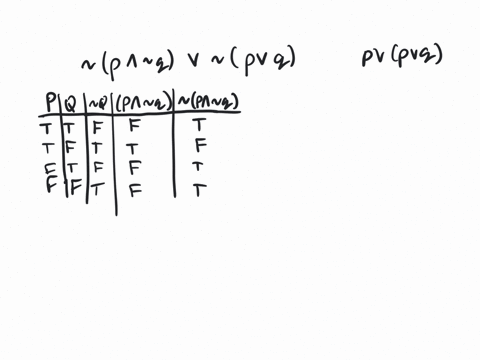 ~(p∧~q) ∨ ~(p∨q) p∨(p∨q)
P Q ~Q (p∧~q) ~(p∧~q)
T T F F T
T F T T F
F T F F T
F F T F T